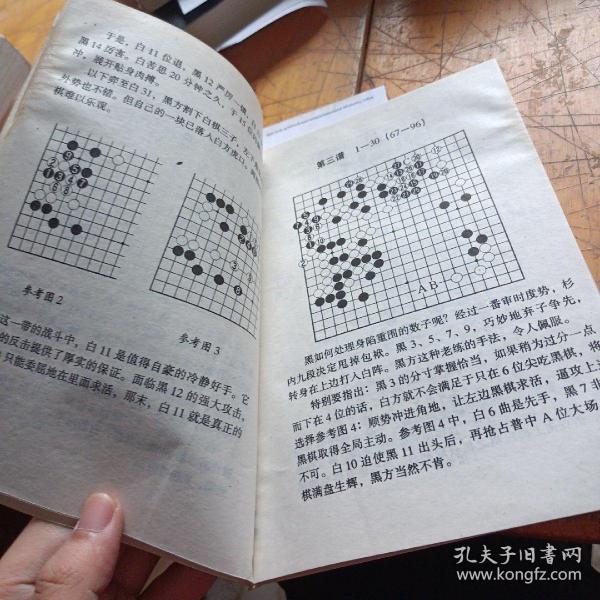 于是，白11位退，黑12严厉一镖，
黑14厉害。白苦思20分钟之久，于15位
冲，展开贴身肉搏。
以下弈至白31，黑方割下白棋三子，左
外势也不错。但自己的一块已落入白方虎口，
棋难以乐观。
参考图2
参考图3
这一带的战斗中，白11是值得自豪的冷静好手。它
的反击提供了厚实的保证。面临黑12的强大攻击，
只能委屈地在里面求活，那末，白11就是真正的
第三谱 1—30（67—96）
A B
黑如何处理身陷重围的数子呢？经过一番审时度势，杉
内九段决定甩掉包袱。黑3、5、7、9，巧妙地弃子争先，
转身在上边打入白阵。黑方这种老练的手法，令人佩服。
特别要指出：黑3的分寸掌握恰当，如果稍为过分一点
而下在4位的话，白方就不会满足于只在6位尖吃黑棋，将
选择参考图4：顺势冲进角地，让左边黑棋求活，逼攻上边
黑棋取得全局主动。参考图4中，白6曲是先手，黑7非
不可。白10迫使黑11出头后，再抢占普中A位大场，
棋满盘生辉，黑方当然不肯。
孔夫子旧书网
www.kongfz.com